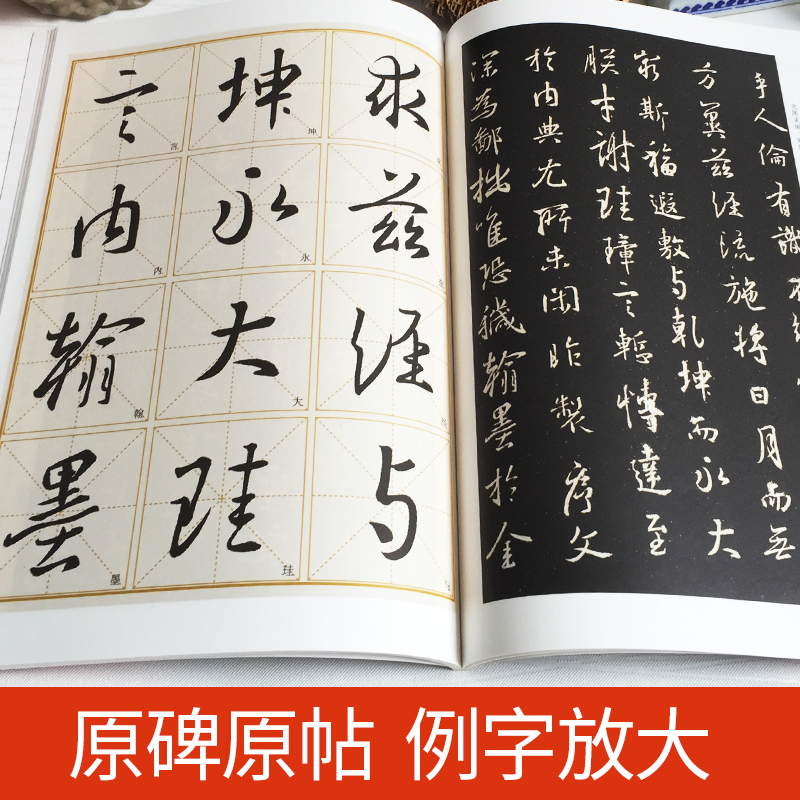 求茲經与
坤永大珪
坤
永
大
珪
言内翰墨
言
内
翰
墨
乎人倫有識不緣
方冀茲經流施將日月而無
窮斯福遐敷与乾坤而永大
朕才謝珪璋言慙博達至
於内典尤所未閑昨製序文
深為鄙拙唯恐穢翰墨於金
原碑原帖 例字放大